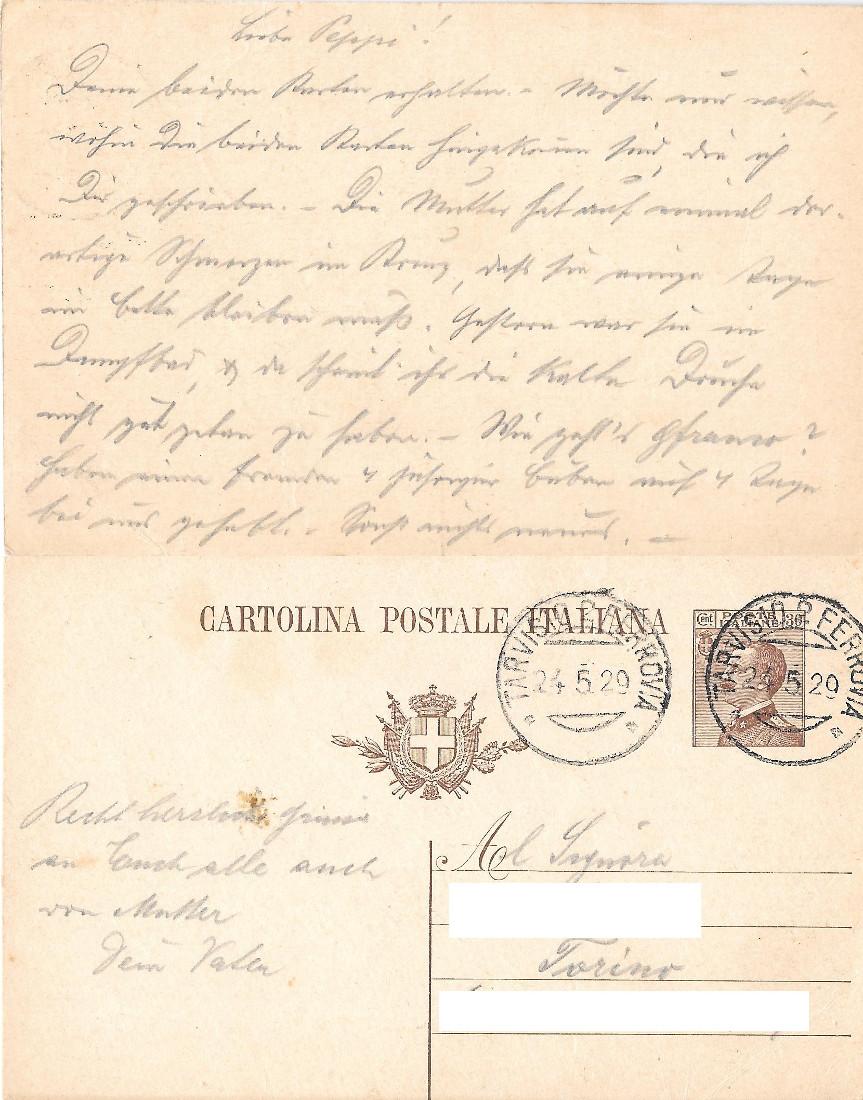 Liebe Peppi!
Deine beiden Karten erhalten. – Möchte nur wissen,
wohin die beiden Karten hingekommen sind, die ich
Dir geschrieben. – Die Mutter hat auf einmal der-
artige Schmerzen im Kreuz, dass sie einige Tage
im Bette bleiben muß. Gestern war sie im
Dampfbad, & da scheint ihr die kalte Douche
nicht gut getan zu haben. – Wie geht's ?
Haben einen fremden 4 jährigen Buben auf 4 Tage
bei uns gehabt. – Sonst nichts neues. –
CARTOLINA POSTALE ITALIANA
Cent POSTE ITALIANE 30
TARVISIO P. FERROVIA
24 5 29
TARVISIO P. FERROVIA
24 5 29
Recht herzliche Grüsse
an Euch alle auch
von Mutter
Dein Vater
Al Signora
Torino